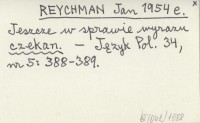 REYCHMAN Jan 1954 e.
Jeszcze w sprawie wyrazu
czekan. – Język Pol. 34,
nr 5: 388-389.